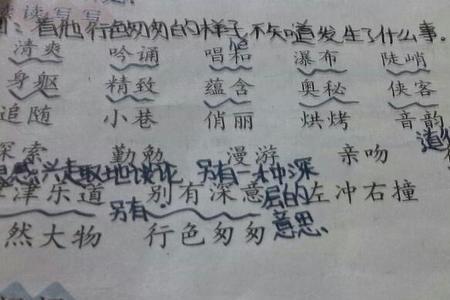 读读写写
看他行色匆匆的样子,不知道发生了什么事。
清爽 吟诵 唱和 瀑布 陡峭
身躯 精致 蕴含 奥秘 侠客
追随 小巷 俏丽 烘烤 音韵
探索 勤勉 漫游 亲吻
感兴趣地谈论 另有一种深
津乐道 别有深意 层的 左冲右撞
另有
然大物 行色匆匆 意思。